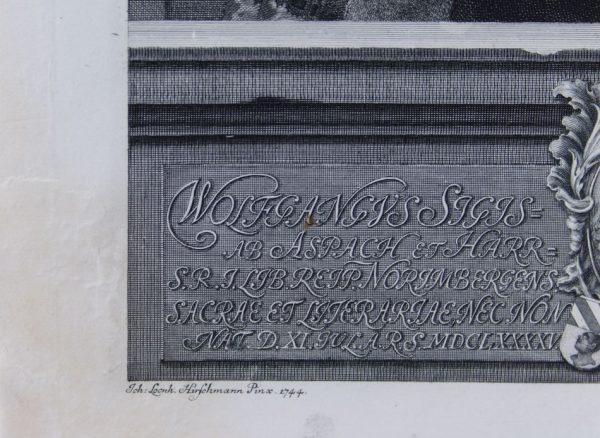 WOLFGANGVS SIGIS=
AB ASPACH ET HARR=
S. R. I. LIB. REIP. NORIMBERGENS.
SACRAE ET LITERARIAE, NEC NON
NAT. D. XI. IUL. A. R. S. MDCLXXXXV
Joh: Leonh. Hirschmann Pinx. 1744.